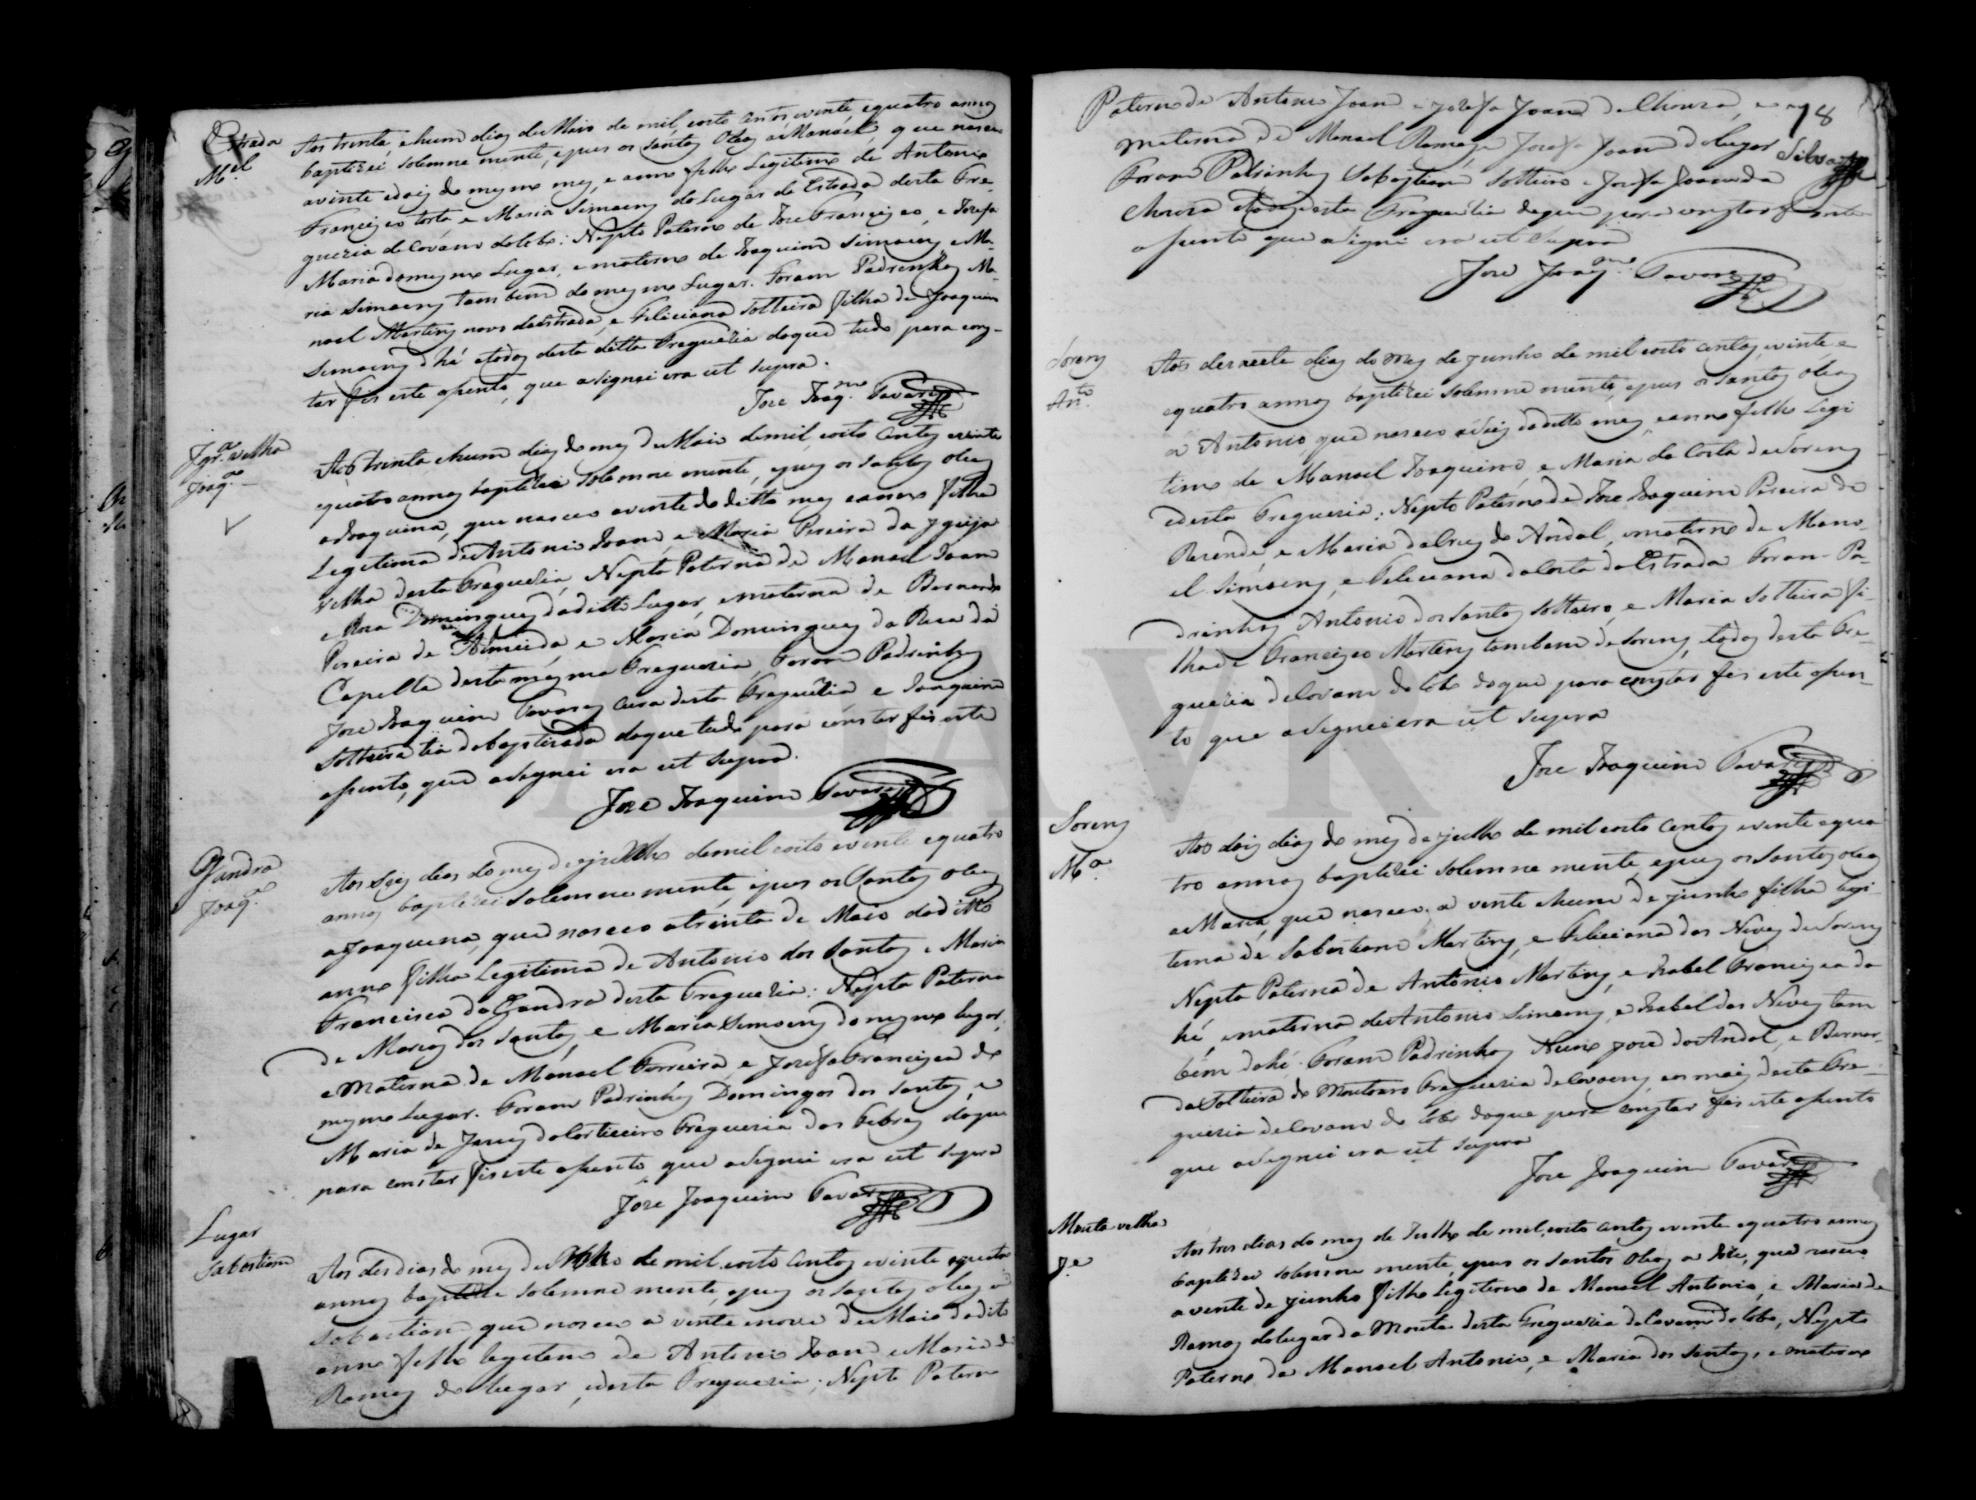 Estrada
M.el
Aos trinta, e hum dias de Maio de mil, oito centos vinte, e quatro annos
baptizei solemne mente, e pus os Santos Oleos a Manoel, que nasceo
a vinte e dois do mesmo mes, e anno filho Legitimo de Antonio
Francisco torto, e Maria Simoens do Lugar da Estrada desta Fre-
guezia de Covam do Lobo: Nepto Paterno de Joze Francisco, e Josefa
Maria do mesmo Lugar, e materno de Joaquim Simoens, e Ma-
ria Simoens tambem do mesmo Lugar. Foram Padrinhos Ma-
noel Martins novo da Estrada, e Feliciana solteira filha de Joaquim
Simoens d'hí e todos desta ditta Freguezia do que tudo para cons-
tar fis este asento, que asignei era ut supra.
Joze Joaq.m Tavares
Igr.a velha
Joaq.a
Aos trinta e hum dias do mes de Maio de mil, oito centos e vinte
e quatro annos baptizei solemne mente, e pus os Santos oleos
a Joaquina, que nasceo a vinte do ditto mes e anno filha
Legitima de Antonio Joam, e Maria Pereira da Igreja
velha desta Freguezia, Nepta Paterna de Manoel Joam
e Roza Domingues do ditto Lugar, e materna de Bernardo
Pereira de Almeida, e Maria Domingues da
Capella desta mesma Freguezia, Foram Padrinhos
Joze Joaquim Tavares Cura desta Freguezia e Joaquina
solteira tia do baptizada do que tudo para constar fis este
asento, que asignei era ut supra.
Joze Joaquim Tavares
Gandra
Joaq.a
Aos seis dias do mes de de mil oito e vente e quatro
annos baptizei solemne mente, e pus os Santos oleos
a Joaquina, que nasceo a trinta de Maio do ditto
anno filha Legitima de Antonio dos Santos e Maria
Francisca da Gandra desta Freguezia: Nepta Paterna
de Marcos dos Santos, e Maria Simoens do mesmo lugar,
e Materna de Manoel Ferreira, e Josefa Francisca do
mesmo Lugar. Foram Padrinhos Domingos dos Santos, e
Maria de Jesus do Corticeiro Freguezia das Febres do que
para constar fis este asento, que asignei era ut supra
Joze Joaquim Tavares
Lugar
Sabastiam
Aos des dias do mes de de mil oito centos e vinte e quatro
annos baptizei solemne mente, e pus os Santos oleos a
Sabastiam, que nasceo a vinte e nove de Maio do dito
anno filho legitimo de Antonio Joam e Maria de
Ramos do lugar, e desta Freguezia, Nepto Paterno
78
Paterno de Antonio Joam e Josefa Joam da Chouza, e
materno de Manoel Ramos, e Josefa Joam do lugar
Foram Padrinhos Sabastiam solteiro e Josefa Joam da
Chouza e todos desta Freguezia do que para constar fis este
asento que asignei era ut supra
Joze Joaq.m Tavares
Sorens
An.to
Aos desacete dias do mes de Junho de mil oito centos, e vinte, e
e quatro annos baptizei solemne mente, e pus os Santos oleos
a Antonio, que nasceo a dois do ditto mes, e anno filho Legi
timo de Manoel Joaquim, e Maria da Costa de Sorens
e desta Freguezia; Nepto Paterno de Joze Joaquim Pereira de
Rezende, e Maria da Crus do Andal, e materno de Mano-
el Simoens, e Feliciana da Costa da Estrada Foram Pa-
drinhos Antonio dos Santos solteiro, e Maria solteira fi-
lha de Francisco Martins tambem de Sorens, todos desta Fre-
guezia de Covam do Lobo do que para constar fis este asen-
to que asignei era ut supra
Joze Joaquim Tavares
Sorens
M.a
Aos dois dias do mes de julho de mil oito centos e vente e qua
tro annos baptizei solemne mente, e pus os Santos oleos
a Maria, que nasceo a vente e hum de junho filha legi-
tema de Sabastiam Martins, e Feliciana das Neves de Sorens
Nepta Paterna de Antonio Martins, e Izabel Francisca da
hí, e materna de Antonio Simoens, e Izabel das Neves tam
bém da hí. Foram Padrinhos Nuno Joze do Andal, e Bernar-
da solteira do Freguezia de Covoens, e os mais desta Fre-
guezia de Covam do Lobo do que para constar fis este asento
que asignei era ut supra
Joze Joaquim Tavares
Monta velha
J.e
Aos tres dias do mes de Julho de mil oito centos e vente e quatro annos
baptizei solemne mente, e pus os Santos oleos a Joze, que nasceo
a vente de junho filho legitimo de Manoel Antonio, e Maria de
Ramos do lugar da Monta desta Freguezia de Covam do Lobo, Nepto
Paterno de Manoel Antonio, e Maria dos Santos, e materno